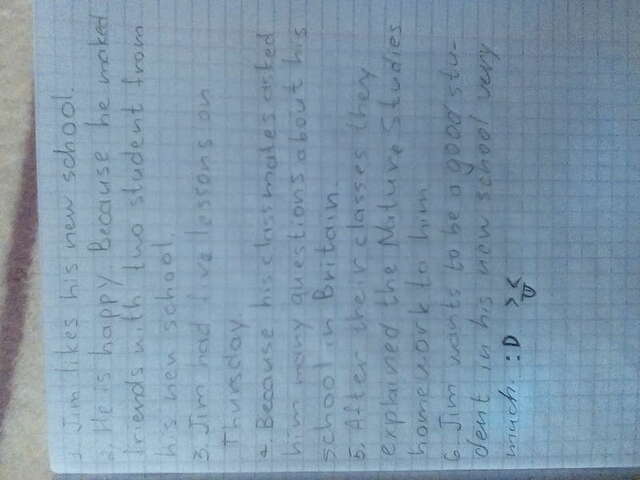 1. Jim likes his new school.
2. He is happy. Because he maked
friends with two student from
his new school.
3. Jim had five lessons on
Thuesday
4. Because his classmates asted
him many questions about his
school in Britain.
5. After their classes they
explained the Nuture Studies
homework to him
6. Jim wants to be a good stu-
dent in his new school very
much. :D ><